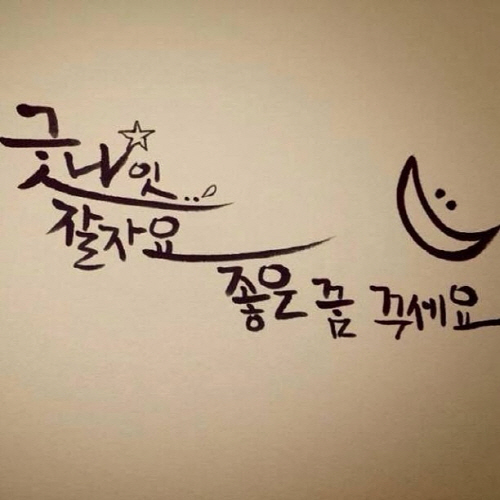 굿나잇..
잘자요
좋은 꿈 꾸세요